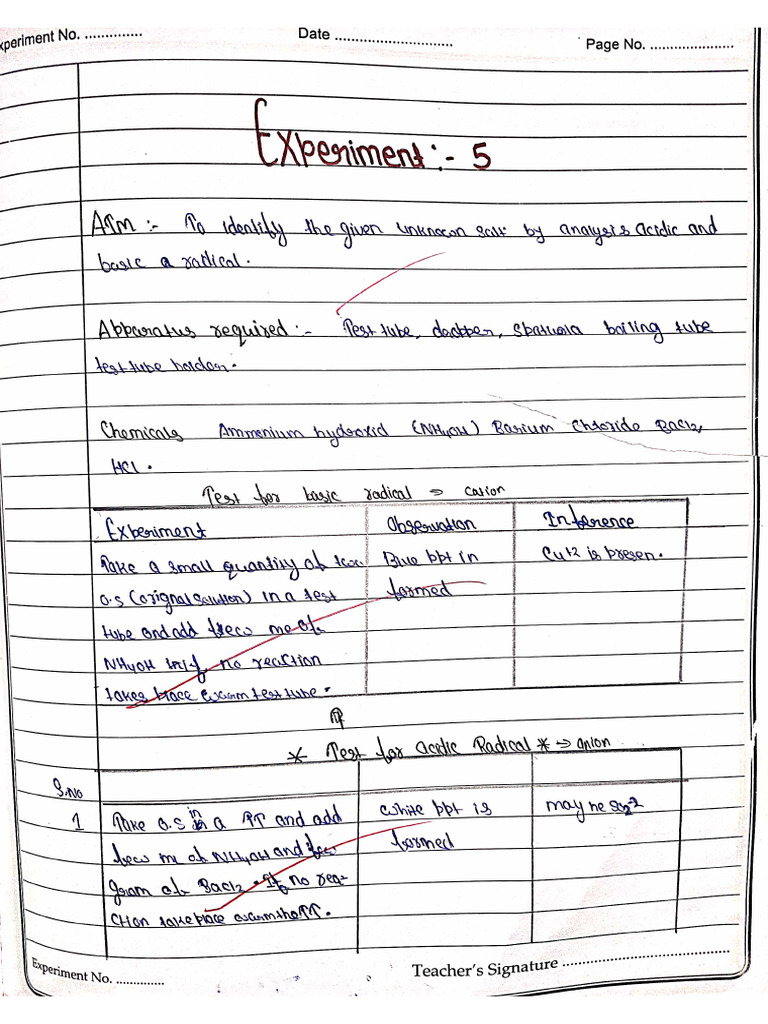 Experiment No. ..............
Date ............................
Page No. .....................
Experiment :- 5
AIM :- To identify the given unknown salt by analysis acidic and
basic a radical.
Apparatus required :- Test tube, dropper, spatula boiling tube
test tube holder.
Chemicals Ammonium hydroxid (NH4OH) Barium Chloride BaCl2,
HCl.
Test for basic radical → cation
Experiment Observation Inference
Take a small quantity of Blue ppt in Cu+2 is presen.
o.s (orignal solution) in a test formed
tube and add few ml of
NH4OH if no reaction
takes place warm test tube.
* Test for acidic Radical * → anion
S.No
1 Take o.s in a TT and add white ppt is may be
few ml of NH4OH and few formed
gram of BaCl2. If no rea-
ction take place warm the TT.
Experiment No. .............
Teacher's Signature ....................................